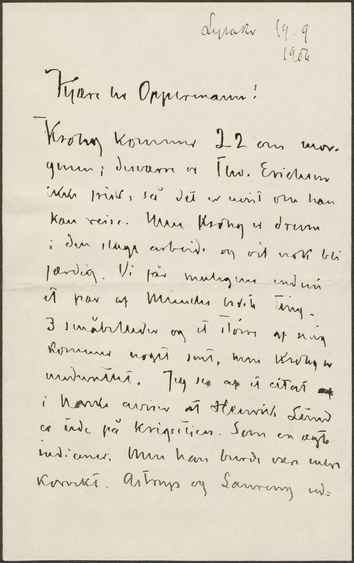 Lysaker 19-9
1906
Kjære hr Oppermann!
Krohg kommer 22 om mor-
genen; desværre er Thv. Erichsen
ikke frisk, så det er uvist om han
kan reise. Men Krohg er dreven
i den slags arbeide og vil nok bli
færdig. Vi får muligens endnu
et par af Munchs ting.
3 småbilleder og et større af mig
kommer noget sent, men Krohg er
underrettet. Jeg ser af et citat
i norske aviser at Henrik Lund
er ude på krigsstien. Som en ægte
indianer. Men han burde være mere
korrekt. Astrup og Sørensen ud-